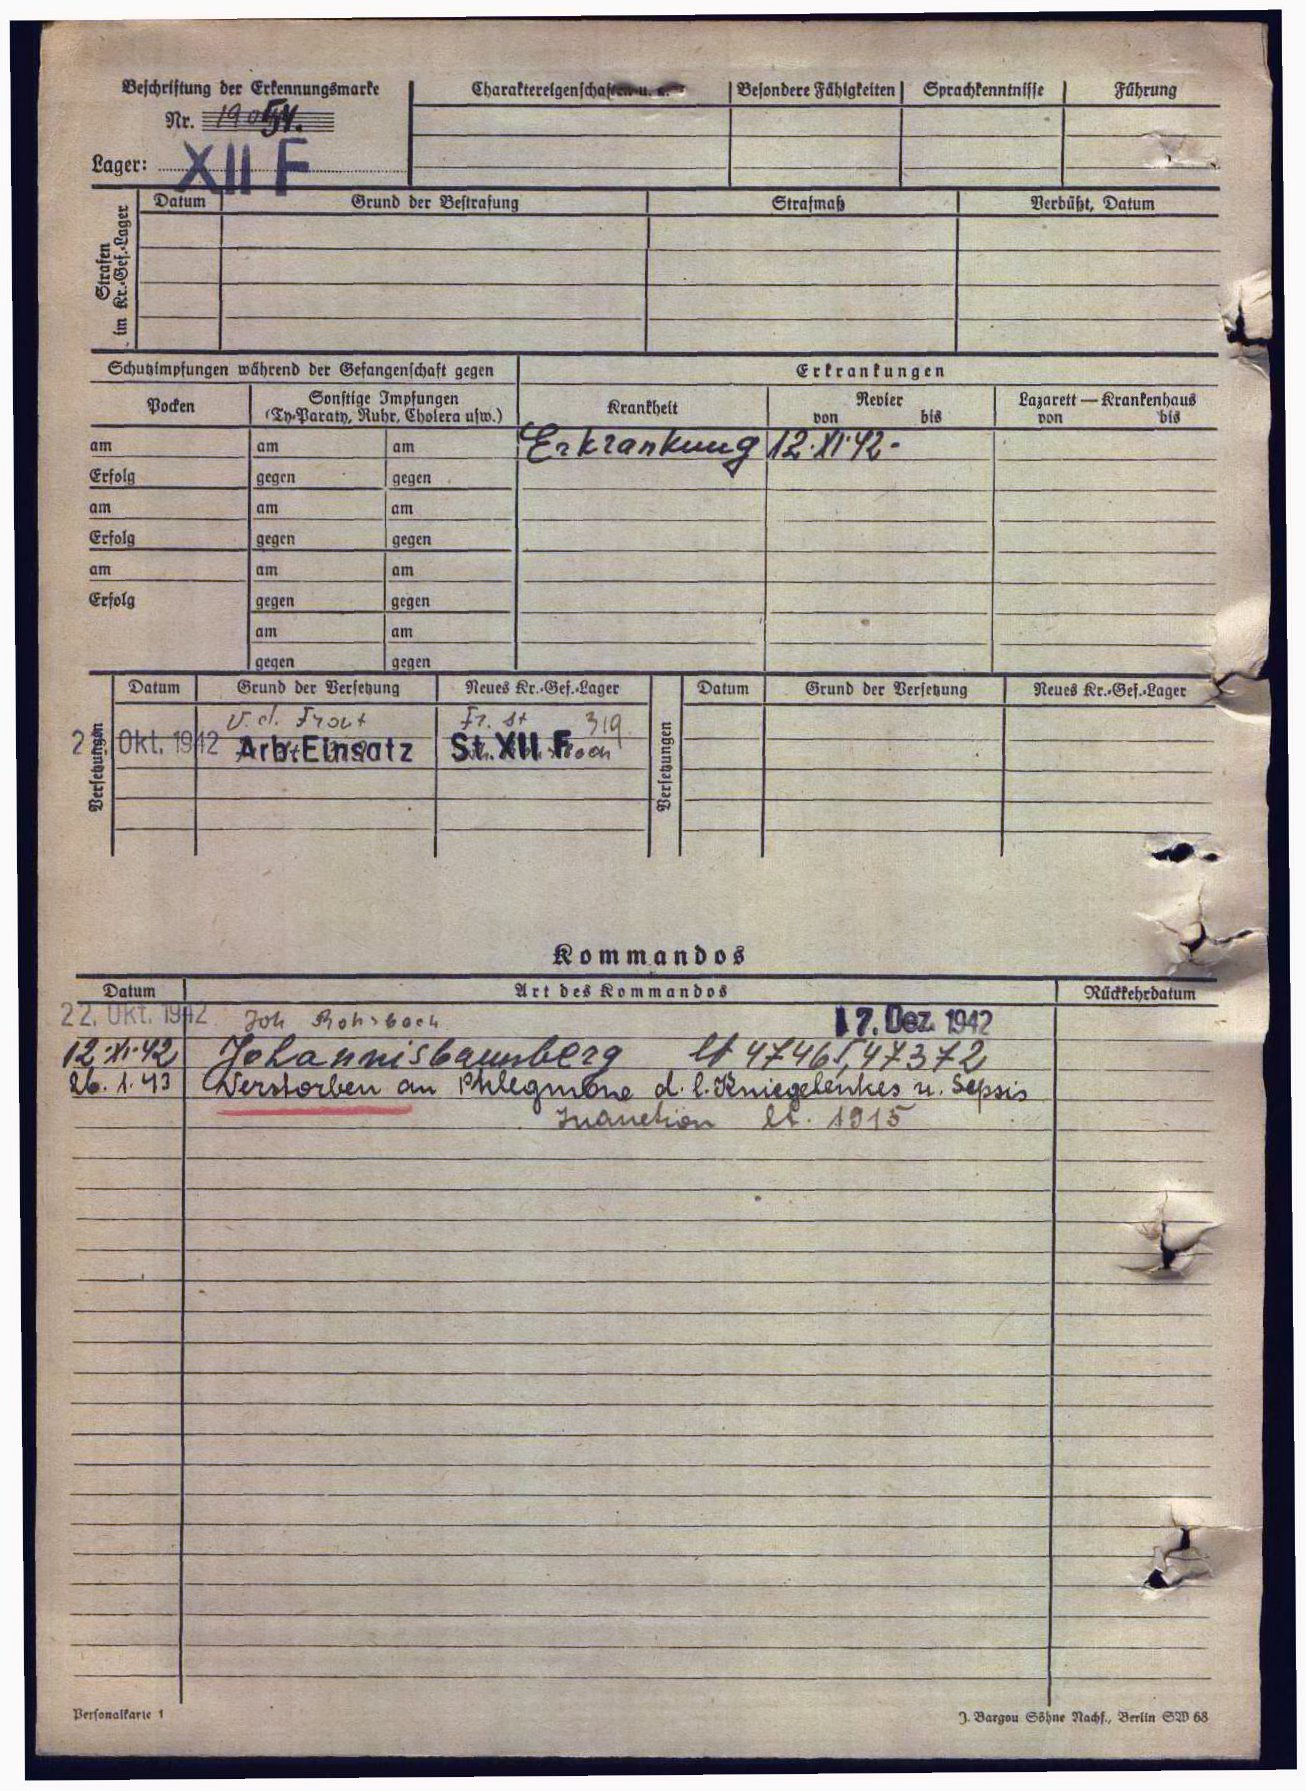 Beschriftung der Erkennungsmarke
Nr.
Lager: XII F
Charaktereigenschaften u.
Besondere Fähigkeiten
Sprachkenntnisse
Führung
Strafen
im Kr.-Gef.-Lager
Datum
Grund der Bestrafung
Strafmaß
Verbüßt, Datum
Schutzimpfungen während der Gefangenschaft gegen
Erkrankungen
Pocken
Sonstige Impfungen
(Ty-Paraty, Ruhr, Cholera usw.)
Krankheit
Revier
von bis
Lazarett — Krankenhaus
von bis
am am am Erkrankung 12.XI.42-
Erfolg gegen gegen
am am am
Erfolg gegen gegen
am am am
Erfolg gegen gegen
am am
gegen gegen
Versetzungen
Datum Grund der Versetzung Neues Kr.-Gef.-Lager
V. d. Front Fr. St 319
Okt. 1942 Arb.Einsatz St. XII F
Versetzungen
Datum Grund der Versetzung Neues Kr.-Gef.-Lager
Kommandos
Datum Art des Kommandos Rückkehrdatum
22. Okt. 1942 Joh Rohrbach 17. Dez. 1942
12.XI.42 Johannisbaumberg lt 47465, 47372
26. 1. 43 Verstorben an Phlegmone d. l. Kniegelenkes u. Sepsis
Inanetion lt. 1915
Personalkarte 1
J. Bargou Söhne Nachf., Berlin SW 68